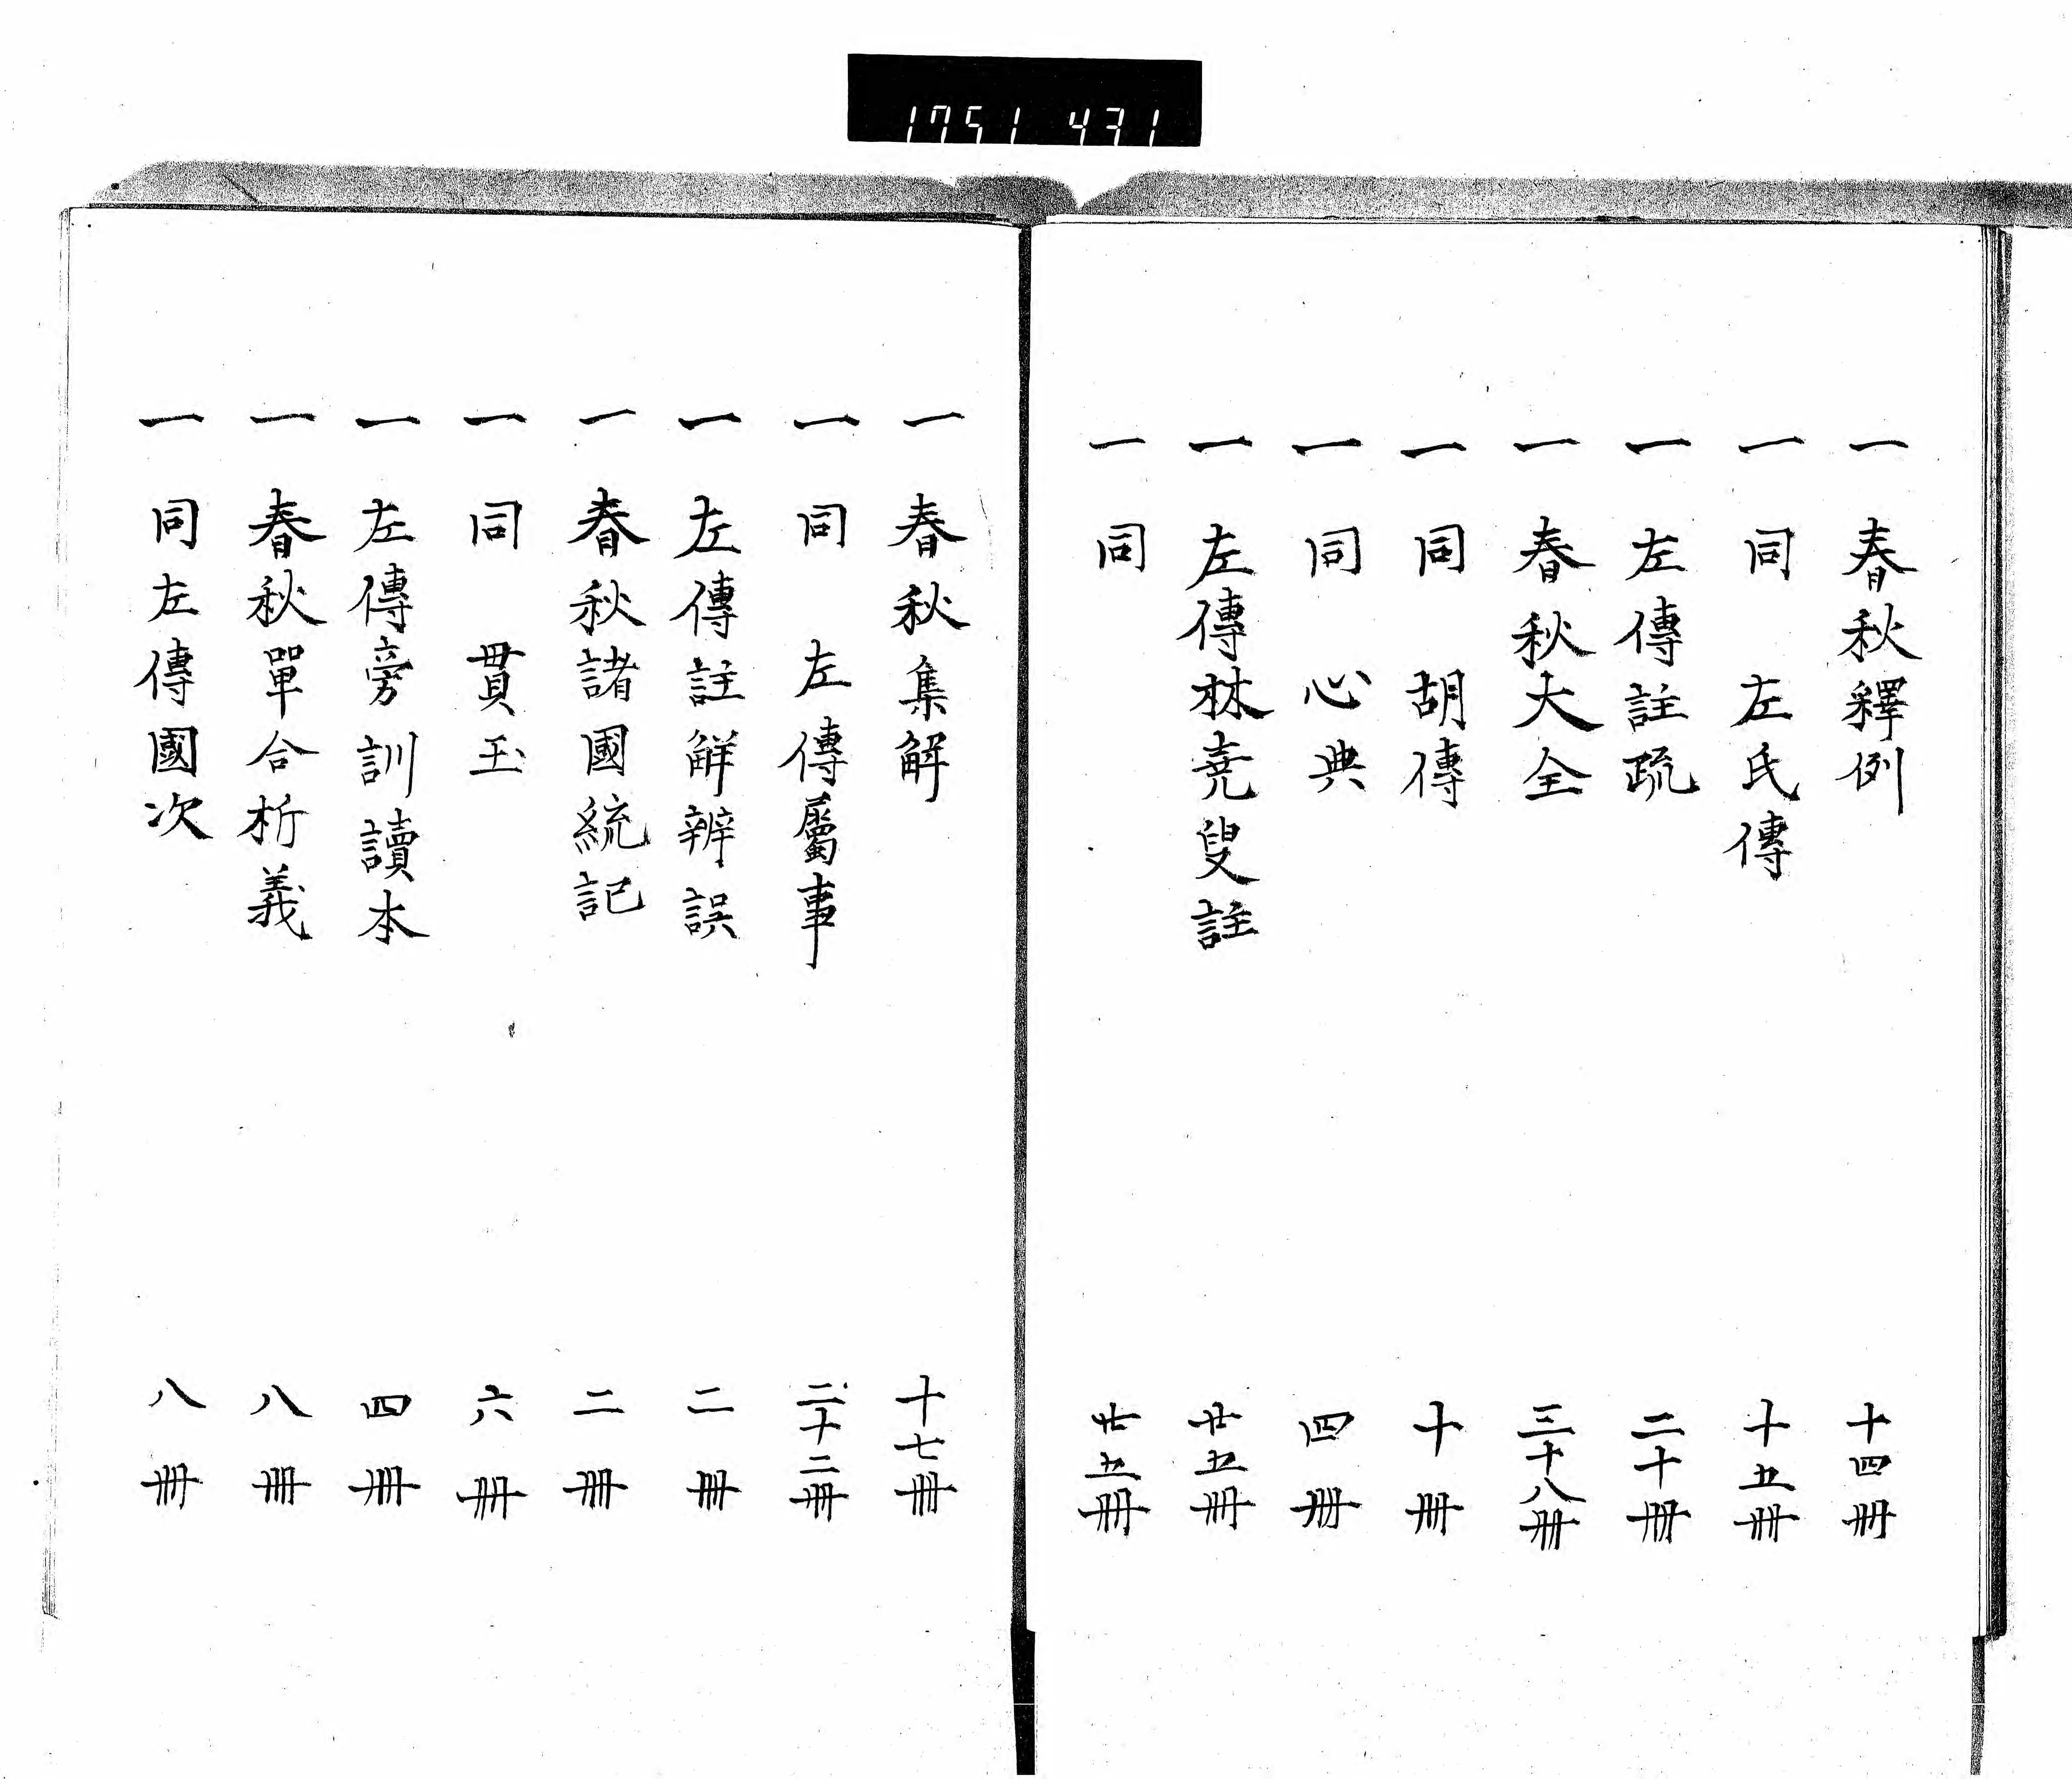 1751 431
一 春秋釋例 十四冊
一 同 左氏傳 十五冊
一 左傳註疏 二十冊
一 春秋大全 三十八冊
一 同 胡傳 十冊
一 同 心典 四冊
一 左傳林堯叟註 廿五冊
一 同 廿五冊
一 春秋集解 十七冊
一 同 左傳屬事 二十二冊
一 左傳註解辨誤 二冊
一 春秋諸國統記 二冊
一 同 貫玉 六冊
一 左傳旁訓讀本 四冊
一 春秋單合析義 八冊
一 同左傳國次 八冊